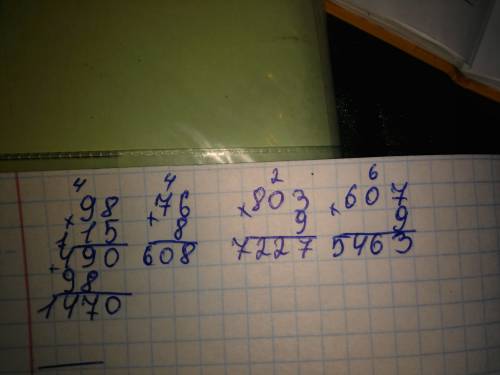 4 4 2 6
×98 ×76 ×803 ×607
15 8 9 9
+490 608 7227 5463
98
1470